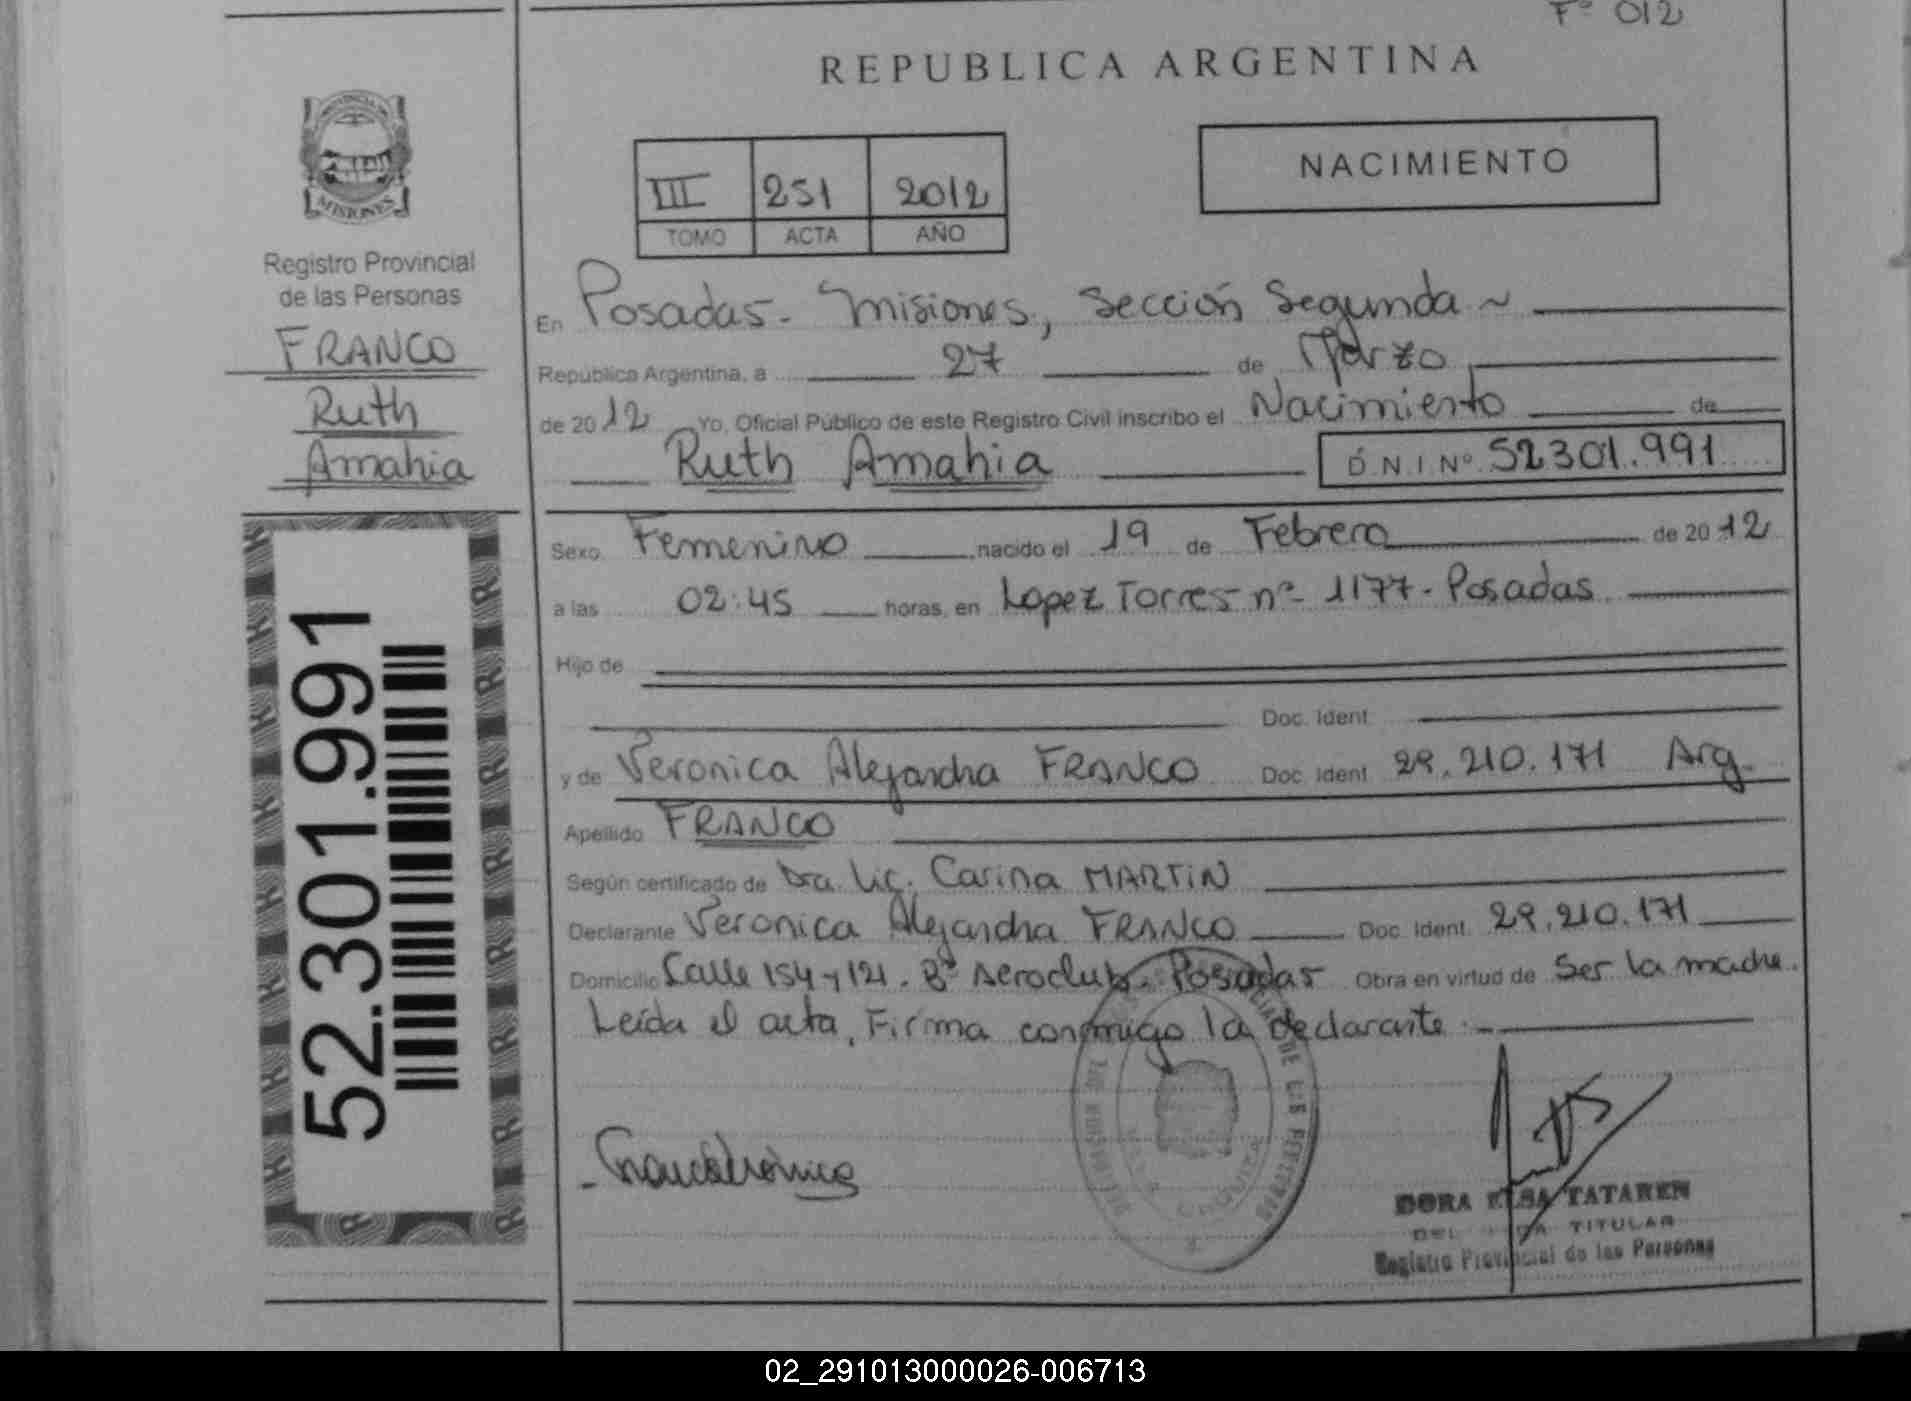 Fº 012
REPUBLICA ARGENTINA
PROVINCIA DE
MISIONES
Registro Provincial
de las Personas
FRANCO
Ruth
Amahia
52.301.991
III 251 2012
TOMO ACTA AÑO
NACIMIENTO
En Posadas - Misiones, Sección Segunda ~
República Argentina, a 27 de Marzo
de 2012 Yo, Oficial Público de este Registro Civil inscribo el Nacimiento de
Ruth Amahia D.N.I Nº 52301.991
Sexo Femenino nacido el 19 de Febrero de 2012
a las 02:45 horas, en Lopez Torres nº 1177 - Posadas
Hijo de
Doc. Ident
y de Veronica Alejandra FRANCO Doc. Ident 29.210.171 Arg.
Apellido FRANCO
Según certificado de Dra. Lic. Carina MARTIN
Declarante Veronica Alejandra FRANCO Doc. Ident. 29.210.171
Domicilio Calle 154 y 121. Bº Aeroclub. Posadas Obra en virtud de Ser la madre.
Leída el acta, Firma conmigo la declarante.
DORA ELSA TATAREN
TITULAR
Registro Provincial de las Personas
02_291013000026-006713